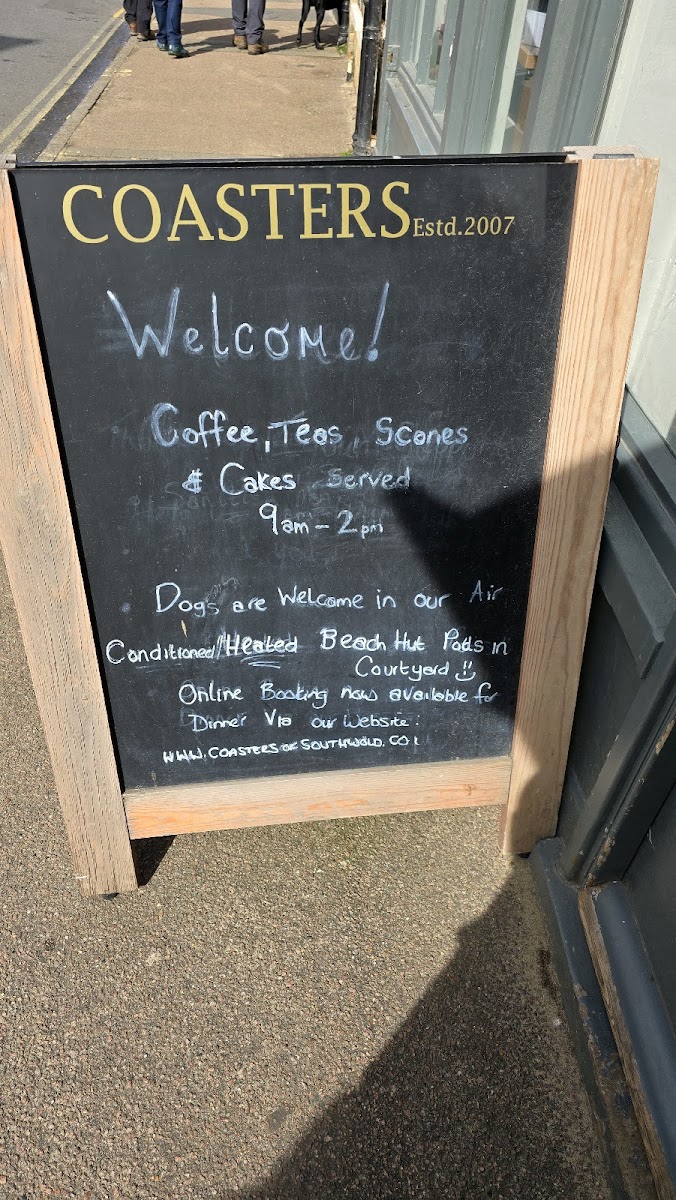 COASTERS Estd.2007
Welcome!
Coffee, Teas, Scones
& Cakes Served
9am - 2pm
Dogs are Welcome in our Air
Conditioned/Heated Beach Hut Pods in
Courtyard
Online Booking now available for
Dinner Via our Website:
WWW.COASTERSOFSOUTHWOLD.CO